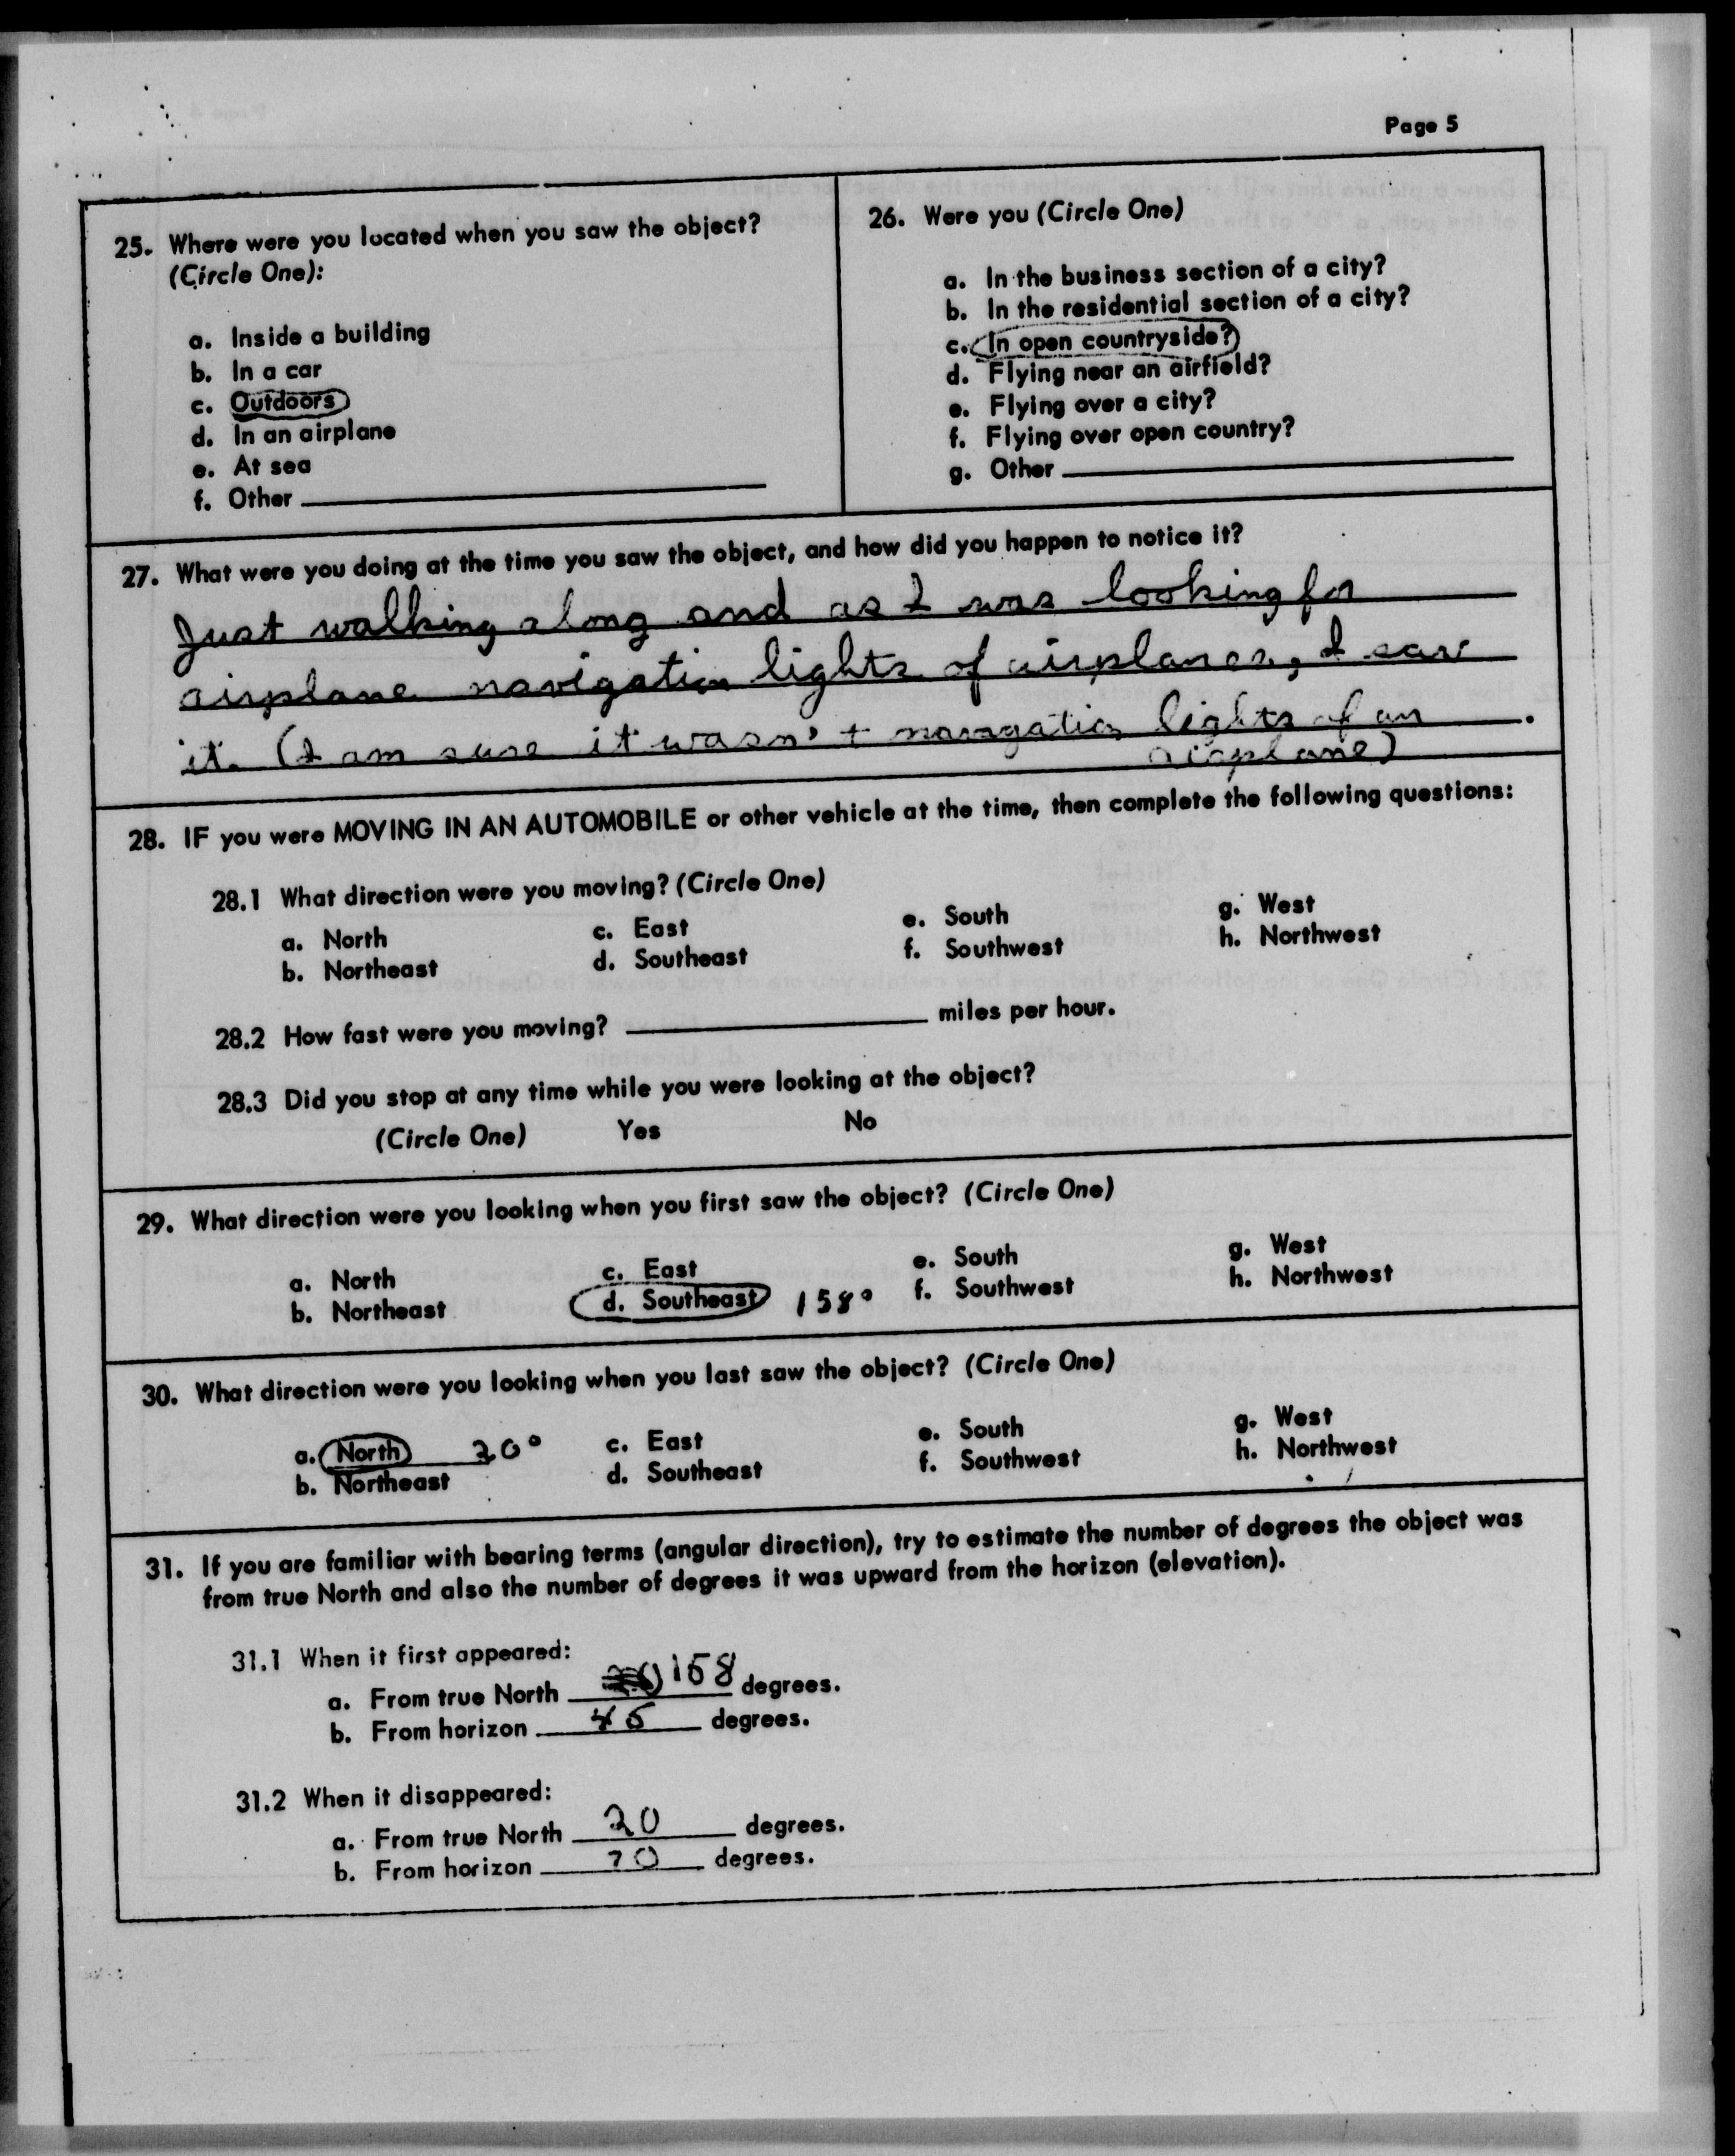 Page 5
25. Where were you located when you saw the object?
(Circle One):
a. Inside a building
b. In a car
c. Outdoors
d. In an airplane
e. At sea
f. Other
26. Were you (Circle One)
a. In the business section of a city?
b. In the residential section of a city?
c. In open countryside?
d. Flying near an airfield?
e. Flying over a city?
f. Flying over open country?
g. Other
27. What were you doing at the time you saw the object, and how did you happen to notice it?
Just walking along and as I was looking for
airplane navigation lights of airplanes, I saw
it. (I am sure it wasn't navagation lights of an
airplane)
28. IF you were MOVING IN AN AUTOMOBILE or other vehicle at the time, then complete the following questions:
28.1 What direction were you moving? (Circle One)
a. North c. East e. South g. West
b. Northeast d. Southeast f. Southwest h. Northwest
28.2 How fast were you moving? miles per hour.
28.3 Did you stop at any time while you were looking at the object?
(Circle One) Yes No
29. What direction were you looking when you first saw the object? (Circle One)
a. North c. East e. South g. West
b. Northeast d. Southeast 158° f. Southwest h. Northwest
30. What direction were you looking when you last saw the object? (Circle One)
a. North 20° c. East e. South g. West
b. Northeast d. Southeast f. Southwest h. Northwest
31. If you are familiar with bearing terms (angular direction), try to estimate the number of degrees the object was
from true North and also the number of degrees it was upward from the horizon (elevation).
31.1 When it first appeared:
a. From true North 158 degrees.
b. From horizon 45 degrees.
31.2 When it disappeared:
a. From true North 20 degrees.
b. From horizon 70 degrees.